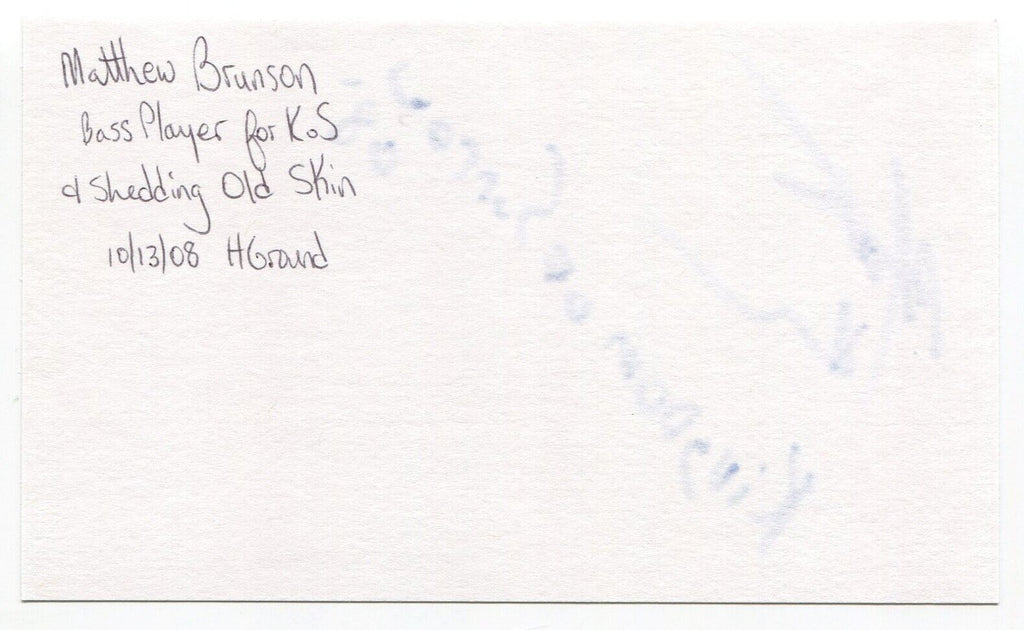 Matthew Brunson
Bass Player for K.o.S
& Shedding Old Skin
10/13/08 HGround